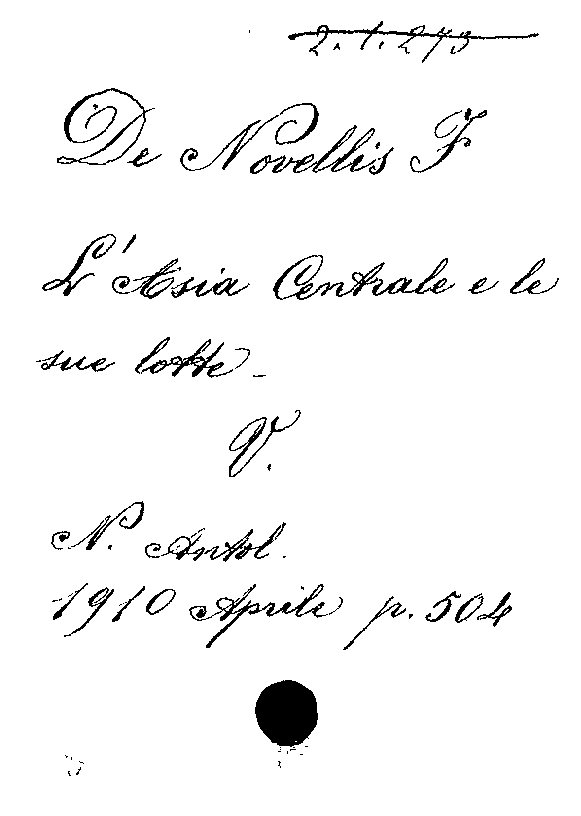 2.1.273
De Novellis F
L'Asia Centrale e le
sue lotte -
V.
N. Antol.
1910 Aprile p. 504